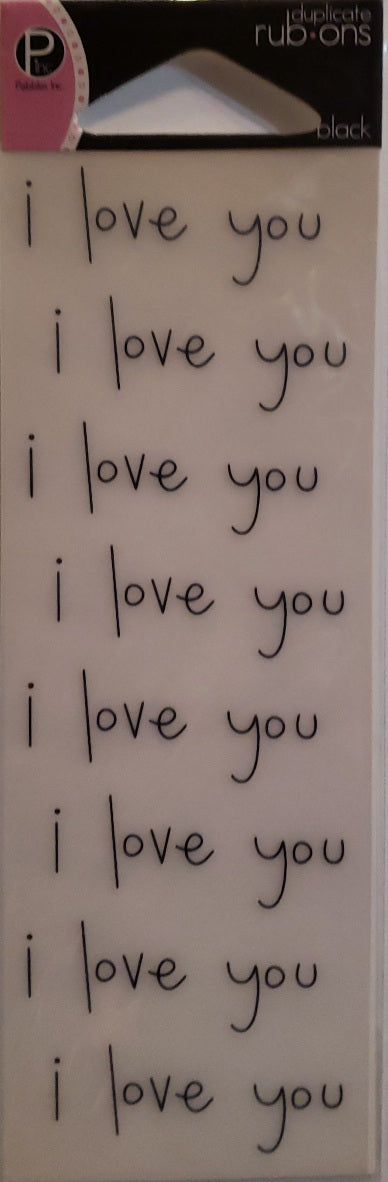 duplicate
rub·ons
P
Inc
Pebbles Inc
black
i love you
i love you
i love you
i love you
i love you
i love you
i love you
i love you